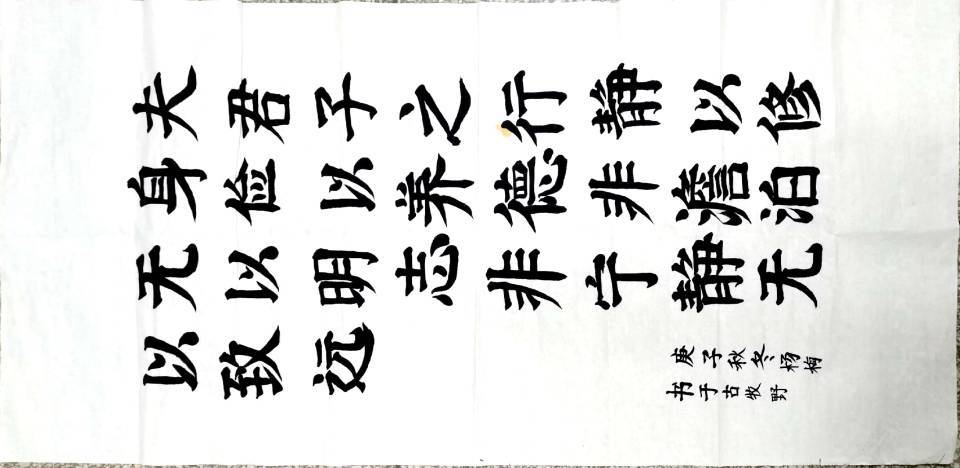 夫君子之行静以修
身俭以养德非澹泊
无以明志非宁静无
以致远
庚子秋冬杨梅
书于古牧野